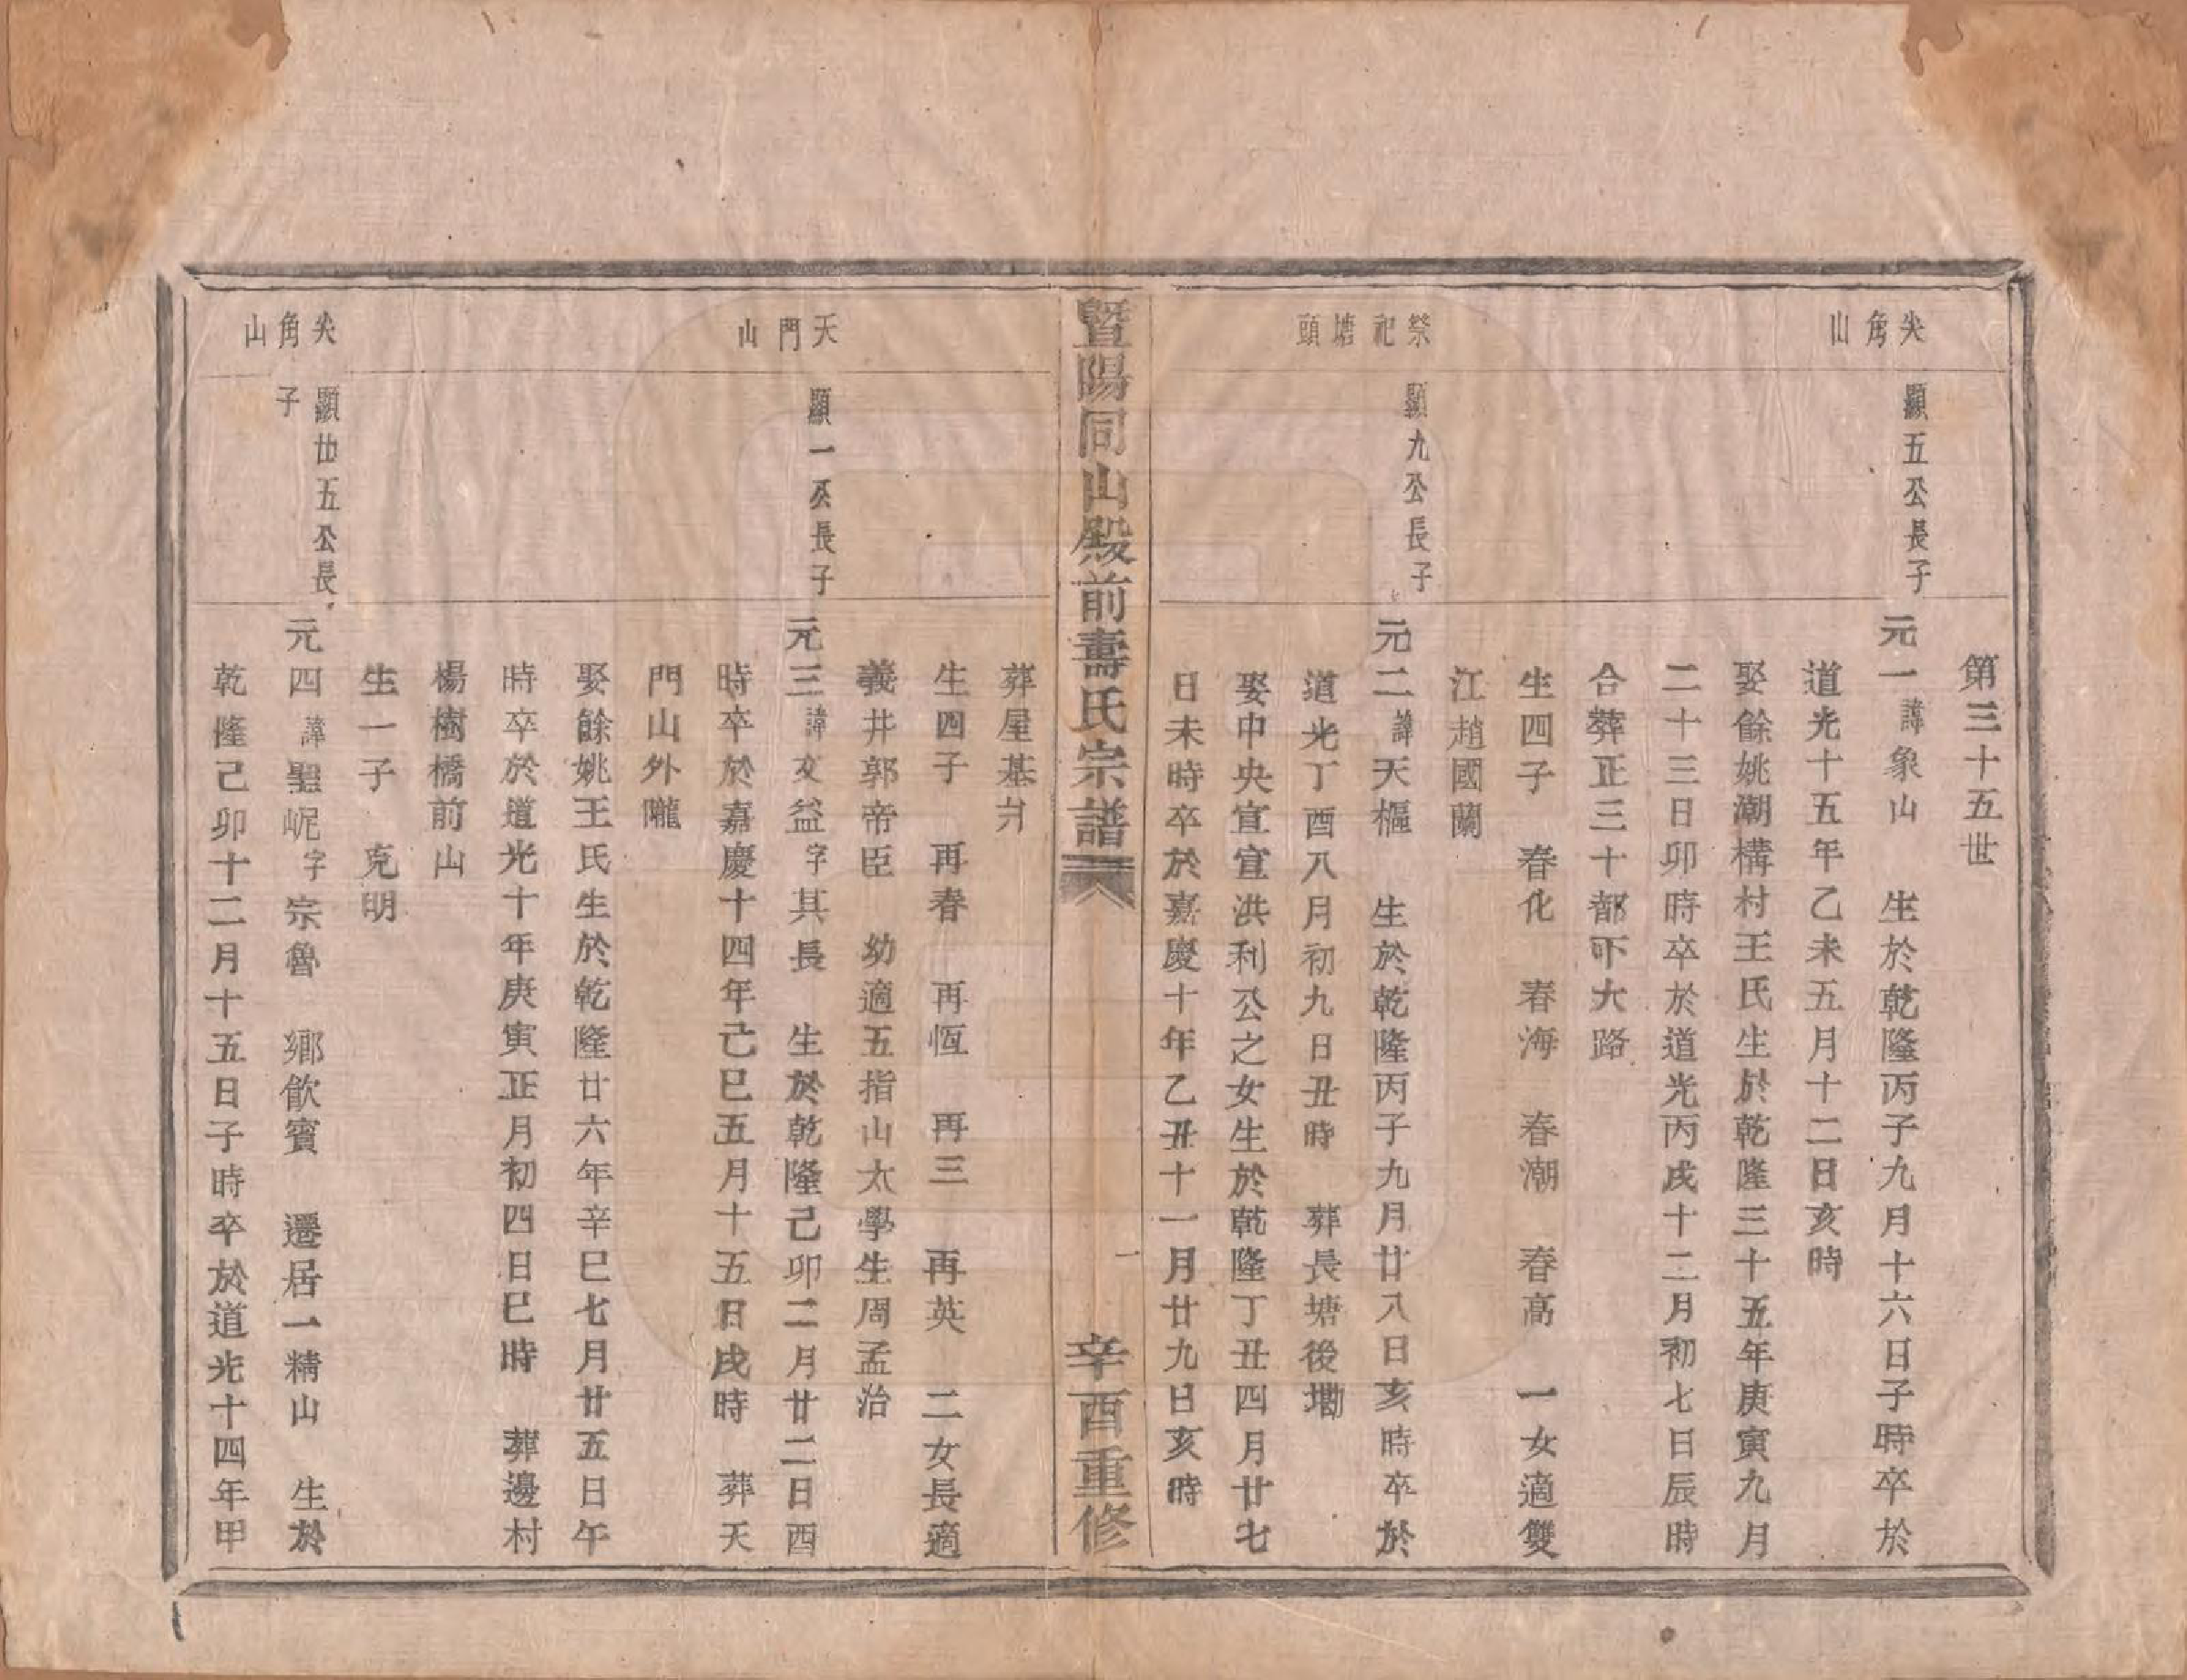 第三十五世
尖角山
顯五公長子
元一諱象山　生於乾隆丙子九月十六日子時卒於
道光十五年乙未五月十二日亥時
娶餘姚潮構村王氏生於乾隆三十五年庚寅九月
二十三日卯時卒於道光丙戌十二月初七日辰時
合葬正三十都下大路
生四子　春化　春海　春潮　春高　一女適雙
江趙國蘭
祭祀塘頭
顯九公長子
元二諱天樞　生於乾隆丙子九月廿八日亥時卒於
道光丁酉八月初九日丑時　葬長塘後塸
娶中央宣宣洪利公之女生於乾隆丁丑四月廿七
日未時卒於嘉慶十年乙丑十一月廿九日亥時
暨陽同山殿前壽氏宗譜
一
辛酉重修
葬屋基爿
生四子　再春　再恆　再三　再英　二女長適
義井郭帝臣　幼適五指山太學生周孟治
天門山
顯一公長子
元三諱文益字其長　生於乾隆己卯二月廿二日酉
時卒於嘉慶十四年己巳五月十五日戌時　葬天
門山外隴
娶餘姚王氏生於乾隆廿六年辛巳七月廿五日午
時卒於道光十年庚寅正月初四日巳時　葬邊村
楊樹橋前山
生一子　克明
尖角山
顯廿五公長
子
元四諱聖岷字宗魯　鄉飲賓　遷居一精山　生於
乾隆己卯十二月十五日子時卒於道光十四年甲